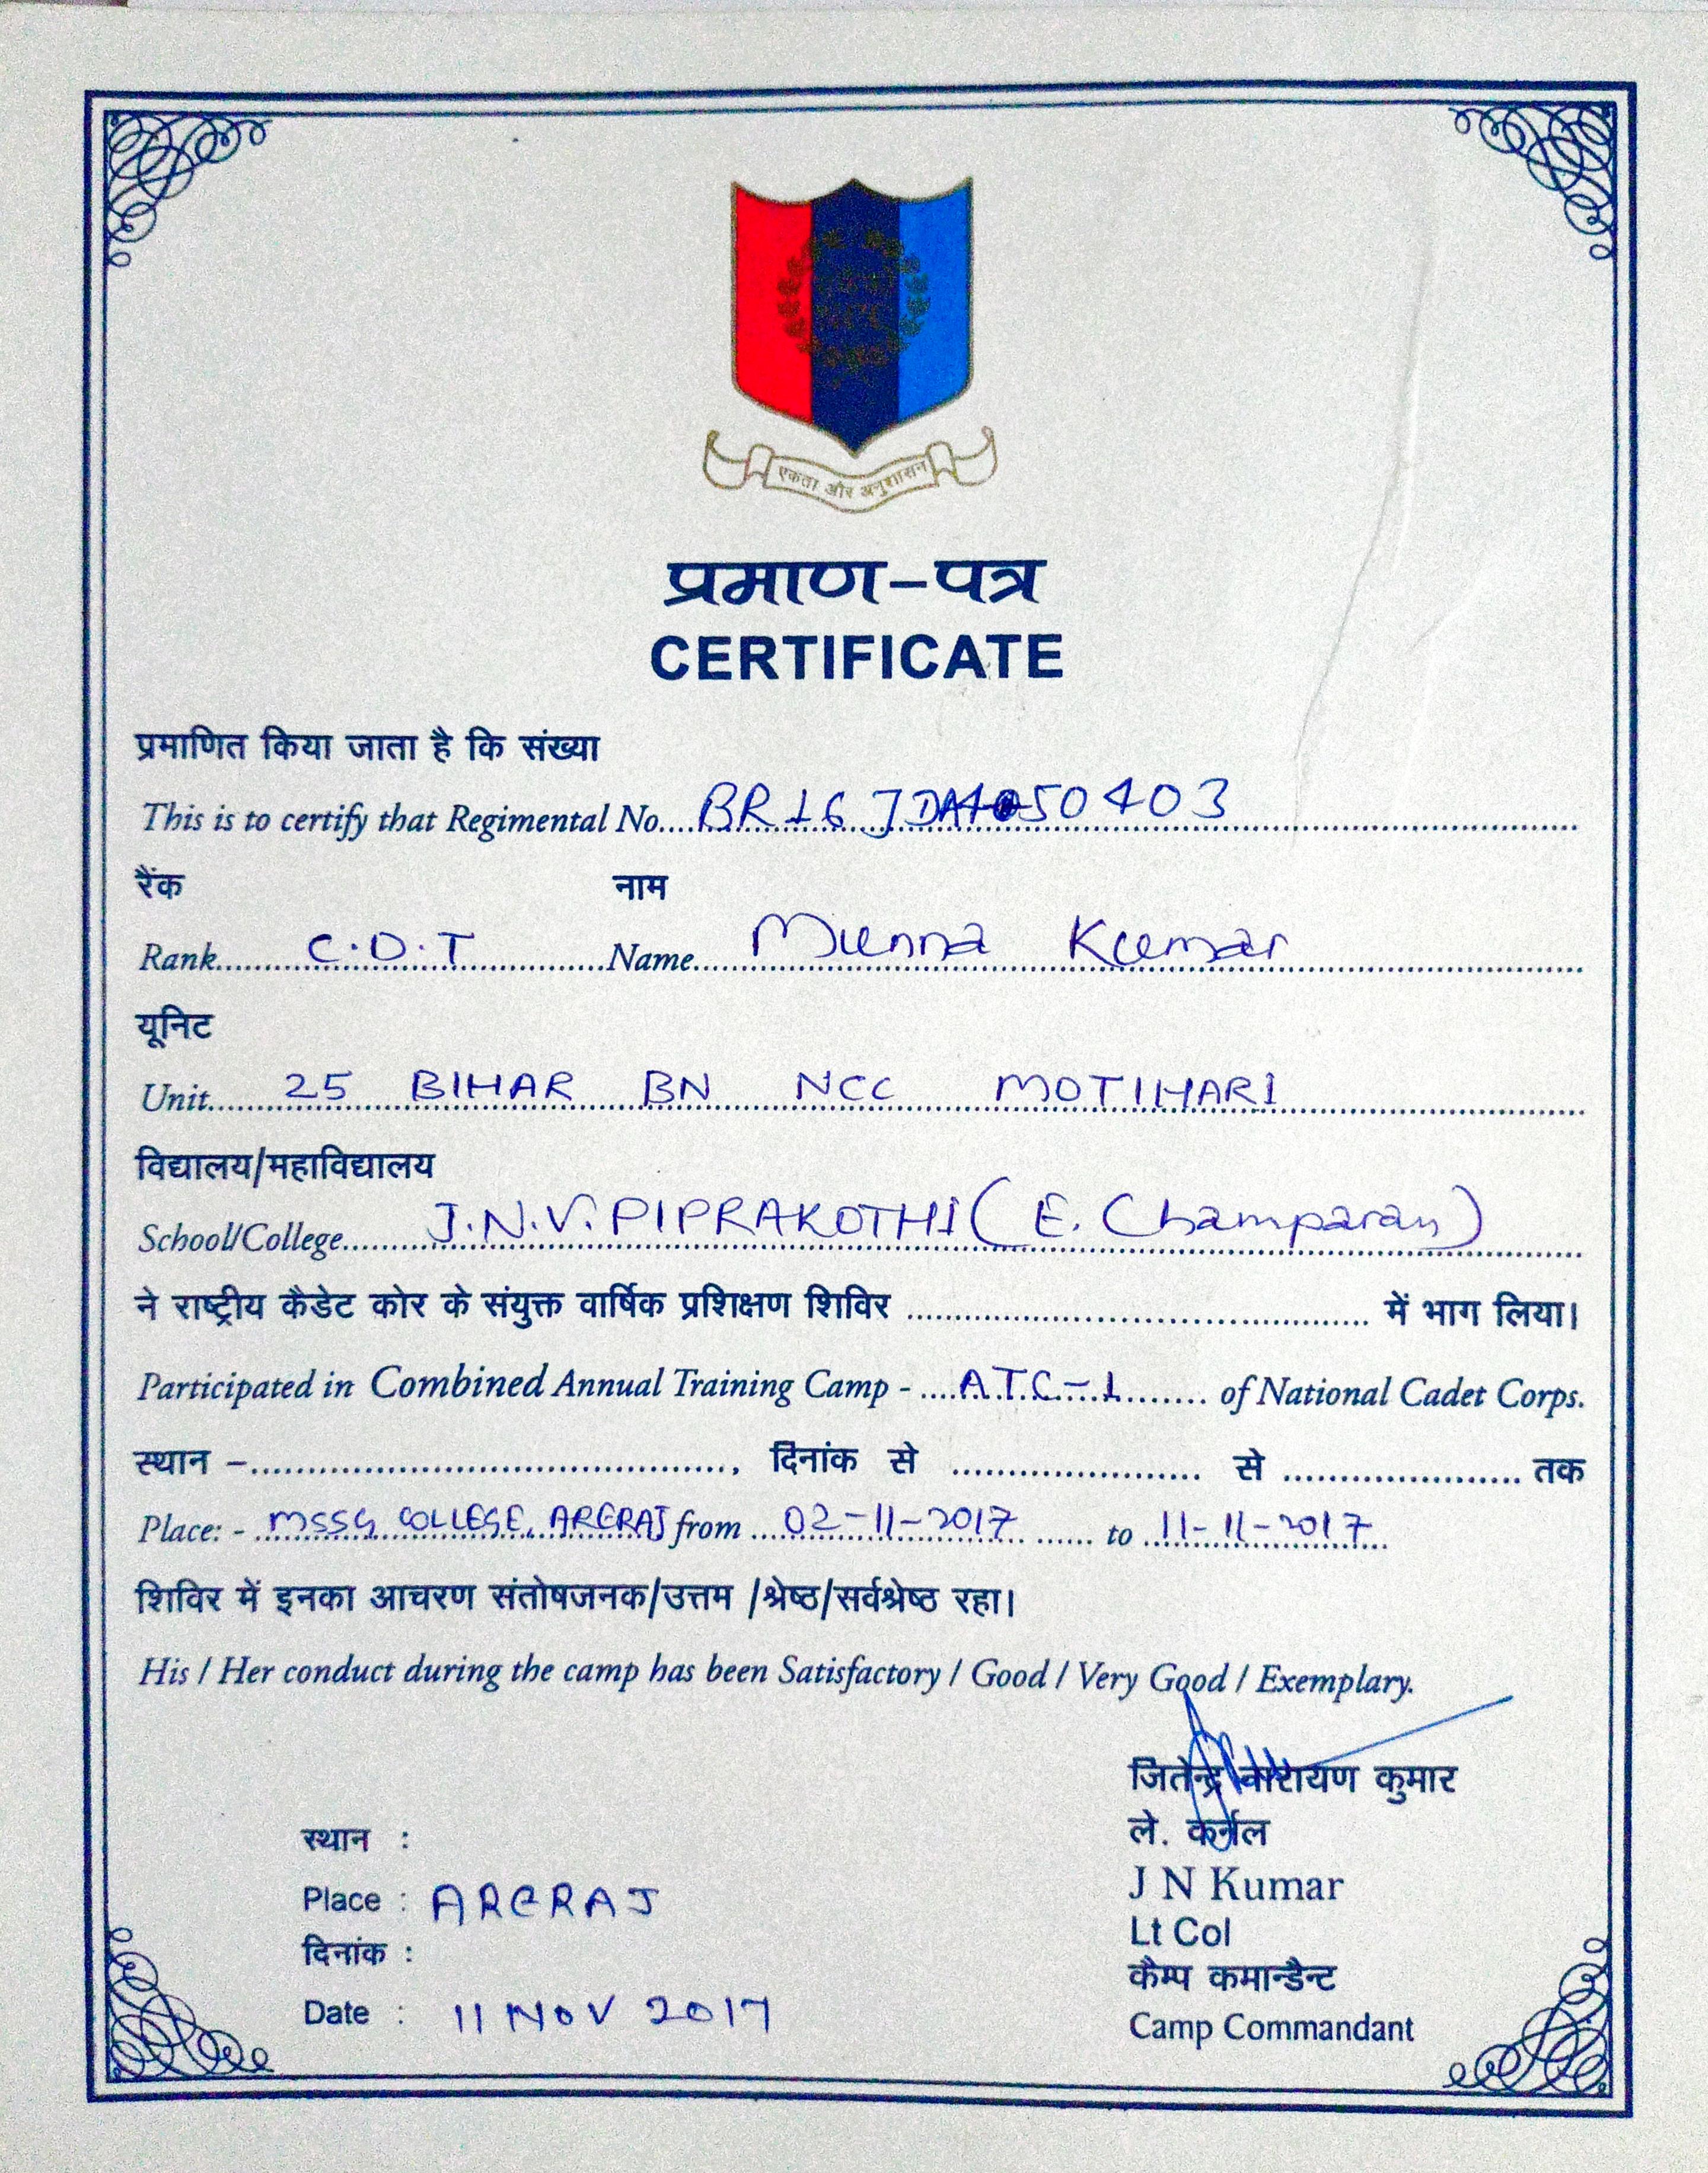 एकता और अनुशासन
प्रमाण-पत्र
CERTIFICATE
प्रमाणित किया जाता है कि संख्या
This is to certify that Regimental No.
रैंक नाम
Rank C.D.T Name Munna Kumar
यूनिट
Unit 25 BIHAR BN NCC MOTIHARI
विद्यालय/महाविद्यालय
School/College J.N.V. PIPRAKOTHI (E. Champaran)
ने राष्ट्रीय कैडेट कोर के संयुक्त वार्षिक प्रशिक्षण शिविर में भाग लिया।
Participated in Combined Annual Training Camp - A.T.C-1 of National Cadet Corps.
स्थान – , दिनांक से से तक
Place: - MSSG COLLEGE, ARERAJ from 02-11-2017 to 11-11-2017
शिविर में इनका आचरण संतोषजनक/उत्तम /श्रेष्ठ/सर्वश्रेष्ठ रहा।
His / Her conduct during the camp has been Satisfactory / Good / Very Good / Exemplary.
जितेन्द्र नारायण कुमार
ले. कर्नल
J N Kumar
Lt Col
कैम्प कमान्डैन्ट
Camp Commandant
स्थान :
Place : ARERAJ
दिनांक :
Date : 11 NOV 2017